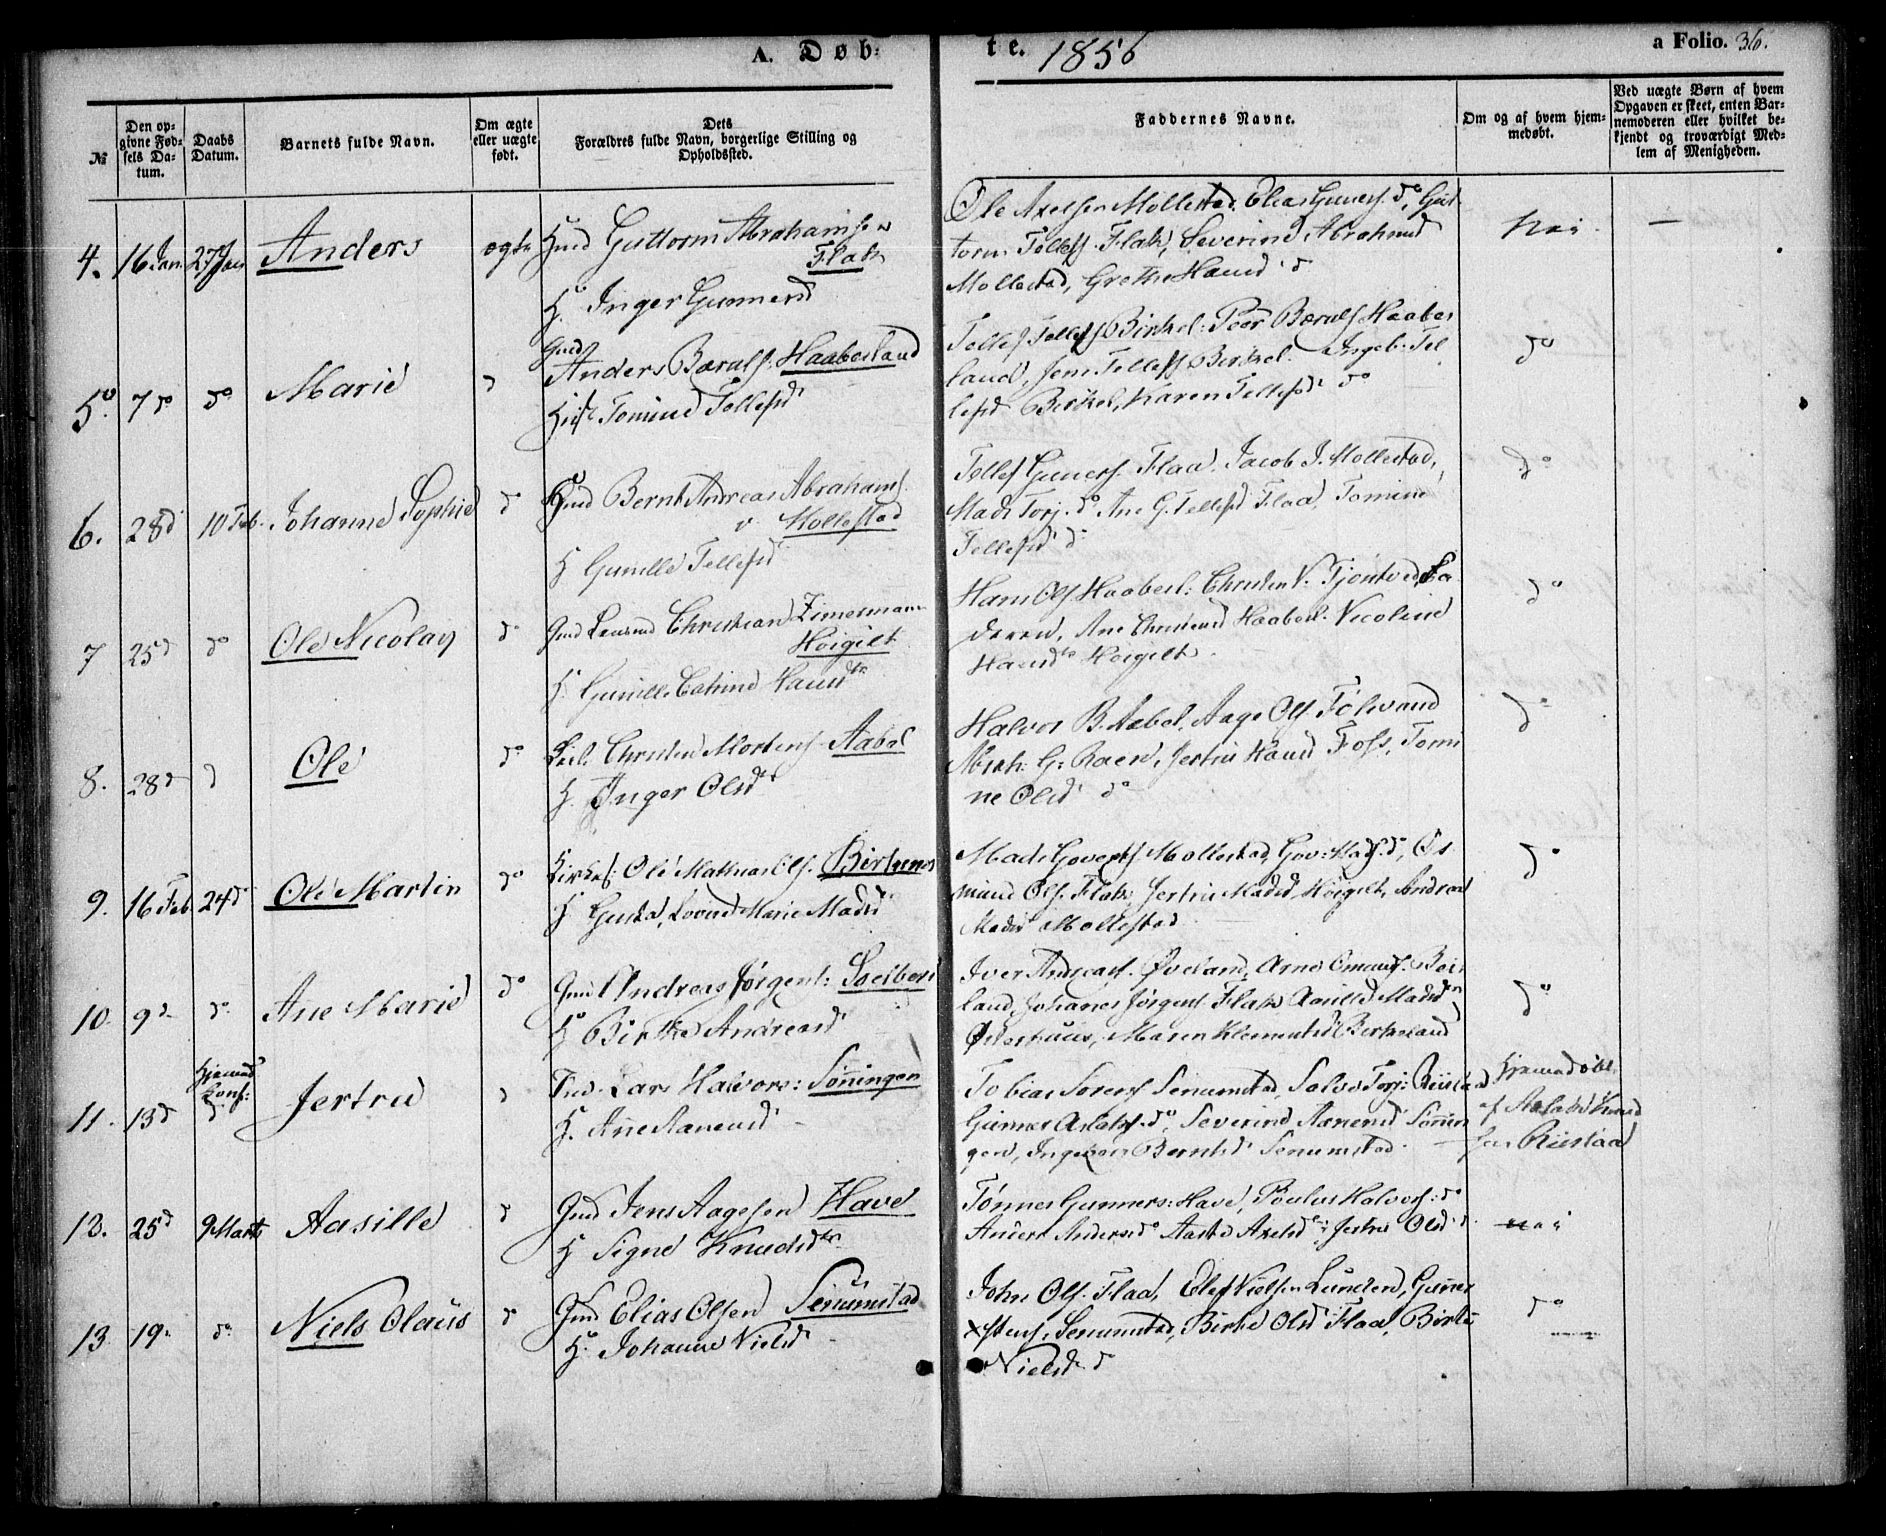 A. Døb-
te. 1856
a Folio. 36.
№
Den op-
givne Fød-
sels Da-
tum.
Daabs
Datum.
Barnets fulde Navn.
Om ægte
eller uægte
født.
Dets
Forældres fulde Navn, borgerlige Stilling og
Opholdssted.
Faddernes Navne.
Om og af hvem hjem-
medøbt.
Ved uægte Børn af hvem
Opgaven er skeet, enten Bar-
nemoderen eller hvilket be-
kjendt og troværdigt Med-
lem af Menigheden.
4. 16 Jan 27 Jan Anders ægte Gmd Guttorm Abrahamsen
Flak
H. Inger Gunnersd
Ole Axelsen Mollestad, Elias Guners. do, Gut
torm Tellefs. Flak, Severine Abrahamsd
Mollestad, Grethe Hansd d
Nei —
5. 7 do do Marie d Gmd
Anders Bærulfs. Haabesland
Hust Tomine Tellefsd
Tellef Tellefs Birkel: Peer Bærulfs Haabes
land, Jens Tellefs Birkel. Ingeb. Tel
lefsd Birkel, Karen Tellefsd do
do
6. 28 d 10 Feb. Johanne Sophie do Gmd Bernt Andreas Abrahams.
v. Mollestad
H Gunille Tellefsd
Tellef Guners. Flaa. Jacob J. Mollestad,
Mads Torj. do Ane G. Tellefsd Flaa, Tomine
Tellefsd d
do
7 25 d do Ole Nicolay do Gmd Christian Zimermann
Høigilt
H. Gunille Catrine Hansdtr
Hans Ols Haabesl: Christen N. Tjøntved, Fa
deren, Ane Haabesl. Nicoline
Hansdtr Høigilt
do
8. 28 d d Ole do Christen Mortens. Aabel
H. Inger Olsd
Halvor B. Aabel, Aage Ols. Tølvand
Abrah: G: Baen, Jertru Hansd Foss, Tomi
ne Olsd do
do
9. 16 Feb 24 d Ole Martin do Kirkes: Ole Mathias Ols. Birkenes
H. Gusta, Lovise Marie Madsd
Mads Goverts. Mollestad, Gov: Mads. do, Os
mund Ols. Flak, Jertru Madsd Høigilt, Andrea
Madsd Mollestad
do
10. 9 d do Ane Marie do Gmd Andreas Jørgens: Soelberg
H Birthe Andreasd
Iver Andreas. Øveland, Arne Omunds. Bei
land, Johanes Jørgens Flak Aasille Madsd
Østerhuus, Maren Klemmetsd Birkeland
do
11. 13 d Hjemmed
Conf:
d. Jertru d Ind. Lars Halvors: Sønningen
H. Ane Aanensd
Tobias Sørens Senumstad, Salve Torj: Riisland
Gunner Aslaks. do, Severine Aanensd Sønnin
gen, Ingeborg Berntsd Senumstad
Hjemmedøbt
af Aslak Knud
sen Riisland
12. 25 d 9 Marts Aasille d Gmd Jens Aagesen Have
H Signe Knudsdtr
Tønnes Gunners: Have, Poulus Halvors: do
Anders Anders do Aaste Axelsd do: Jertru Olsd d
nei
13 19. do Niels Olaus d Gmd Elias Olsen Senumstad
H. Johanne Nielsd
John Ols. Flaa, Elef Nielsen Lunden, Gunner
Senumstad, Birte Olsd Flaa, Birte
Nielsd d
do